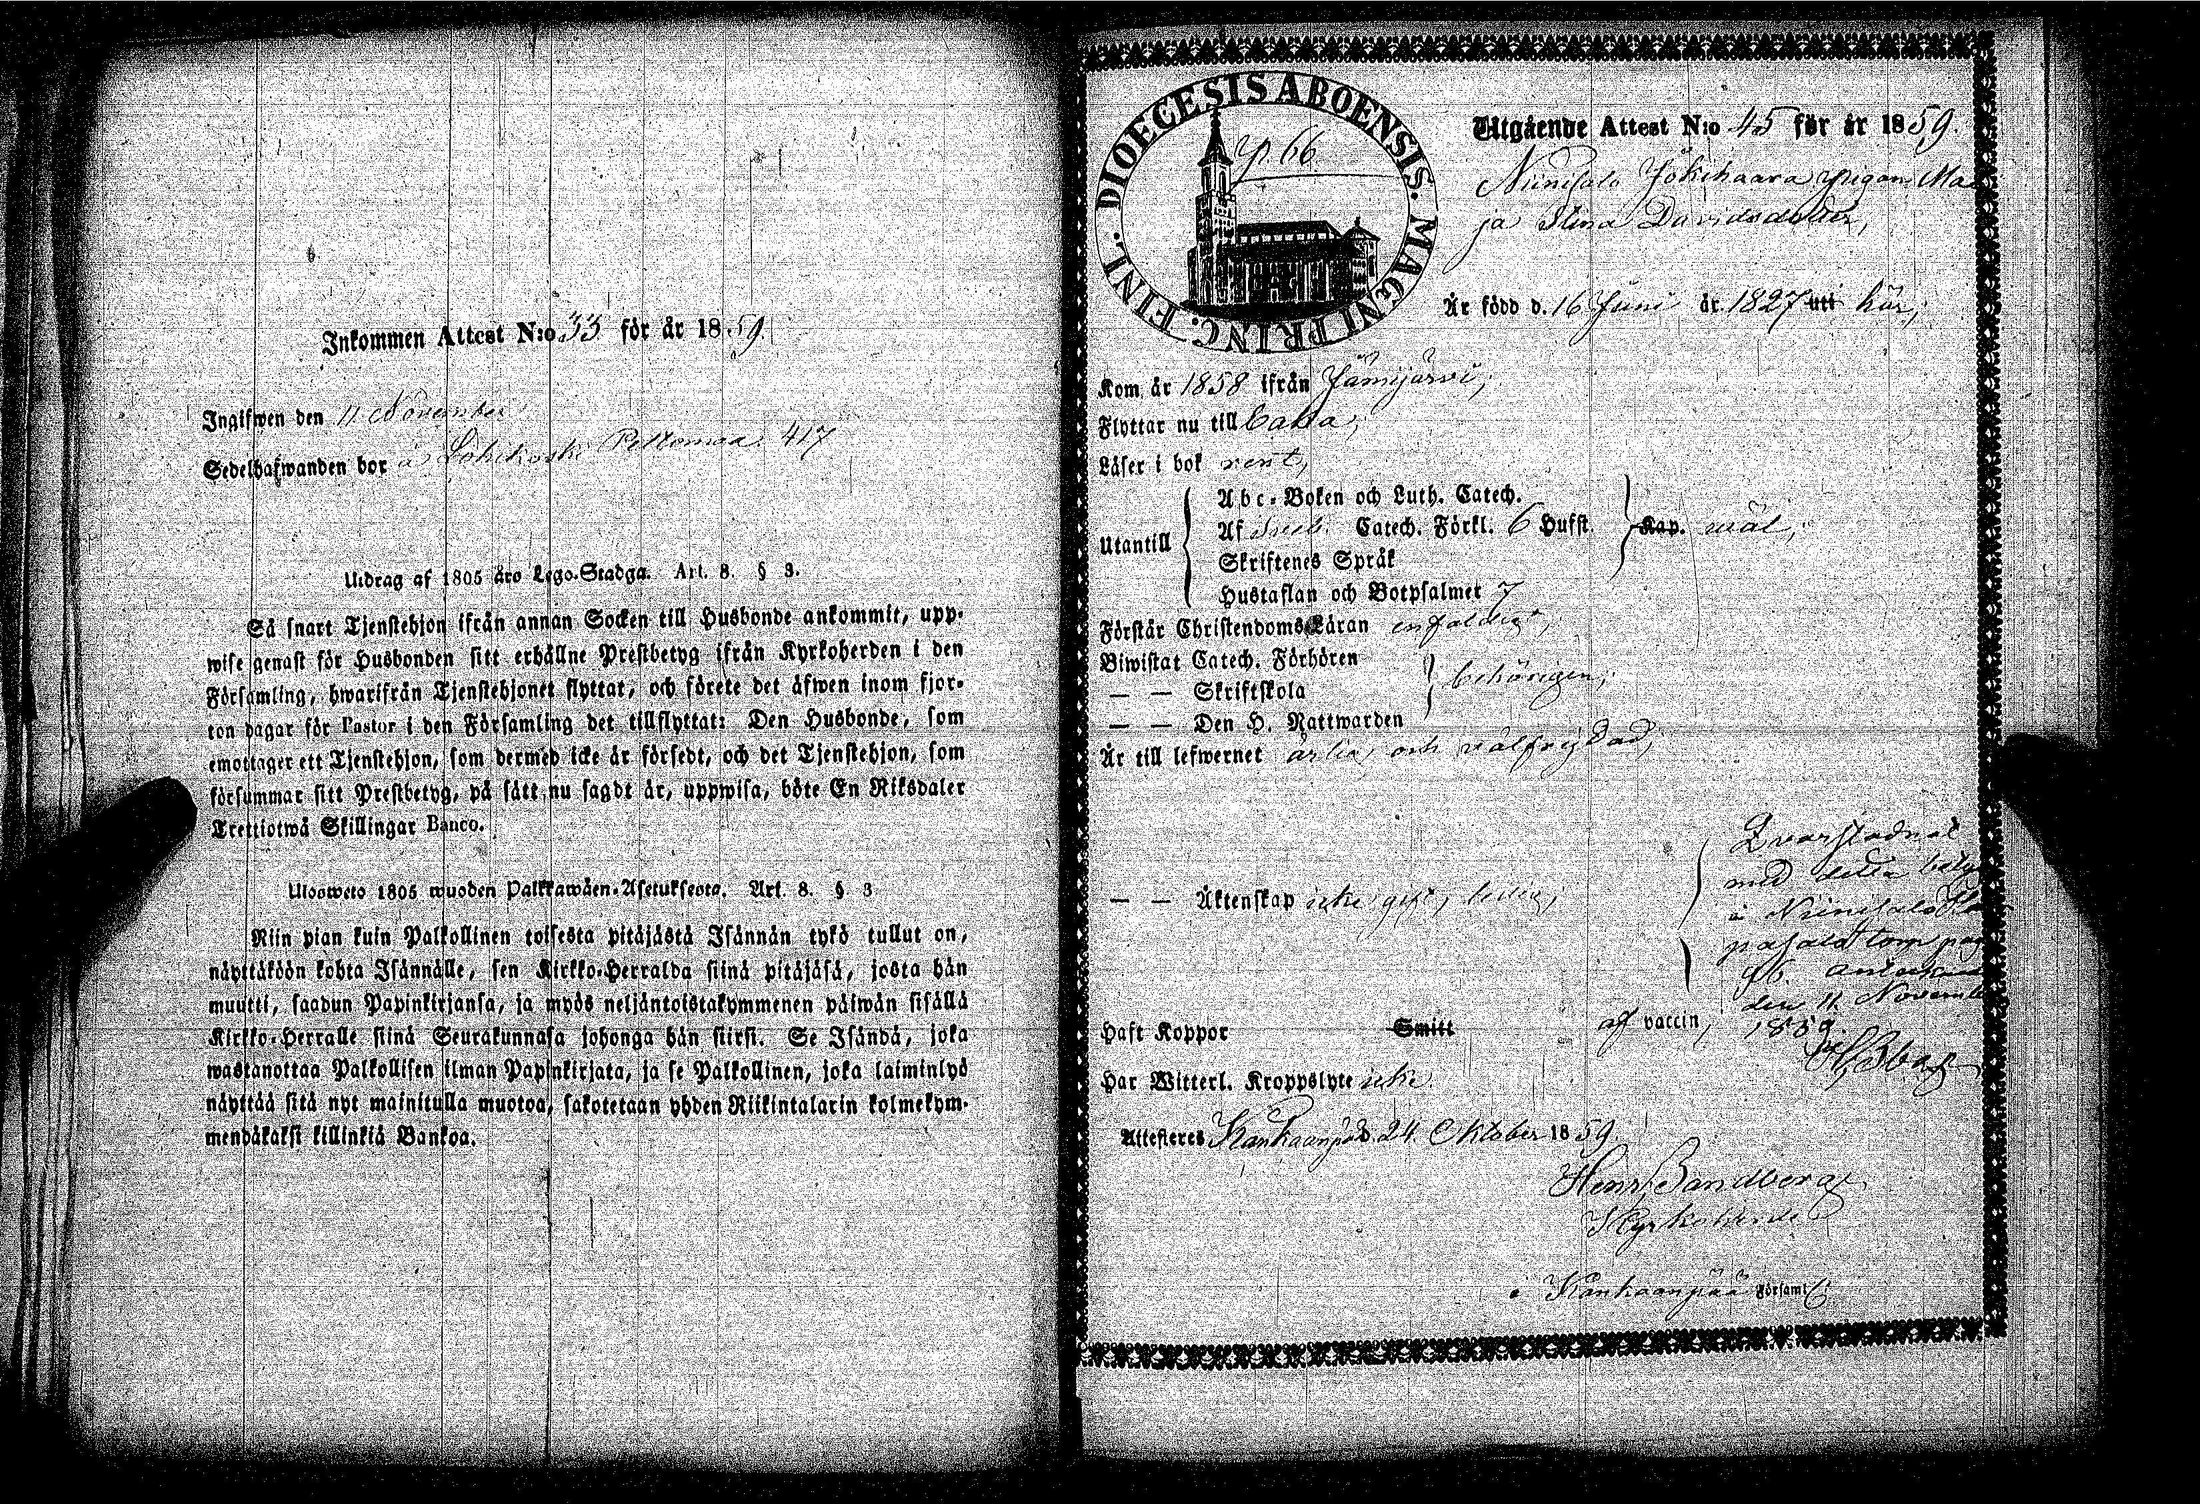 Inkommen Attest N:o 33 för år 1859.
Ingifwen den 11 November
Sedelhafwanden bor å Lohikoski Peltomaa 417
Utdrag af 1805 års Lego-Stadga. Art. 8. § 3.
Så snart Tjenstehjon ifrån annan Socken till Husbonde ankommit, upp-
wise genast för Husbonden sitt erhållne Prestbetyg ifrån Kyrkoherden i den
Församling, hwarifrån Tjenstehjonet flyttat, och förete det äfwen inom fjor-
ton dagar för Pastor i den Församling det tillflyttat: Den Husbonde, som
emottager ett Tjenstehjon, som dermed icke är försedt, och det Tjenstehjon, som
försummar sitt Prestbetyg, på sätt nu sagdt är, uppwisa, böte En Riksdaler
Trettiotwå Skillingar Banco.
Ulosweto 1805 wuoden Palkkawäen-Asetuksesta. Art. 8. § 3
Niin pian kuin Palkollinen toisesta pitäjästä Isännän tykö tullut on,
näyttäköön kohta Isännälle, sen Kirkko-Herralda siinä pitäjäsä, josta hän
muutti, saadun Papinkirjansa, ja myös neljäntoistakymmenen päiwän sisällä
Kirkko-Herralle siinä Seurakunnasa johonga hän siirsi. Se Isändä, joka
wastanottaa Palkollisen ilman Papinkirjata, ja se Palkollinen, joka laiminlyö
näyttää sitä nyt mainitulla muotoa, sakotetaan yhden Riikintalarin kolmekym-
mendäkaksi killinkiä Bankoa.
DIOECESIS ABOENSIS. MAGNI PRINC. FINL.
p. 66
Utgående Attest N:o 45 för år 1859.
Niinisalo Jokihaara pigan Ma
ja Stina Davidsdotter,
Är född d. 16 Juni år 1827 uti här,
Kom år 1858 ifrån Jämijärvi,
Flyttar nu till
Läser i bok rent,
Utantill
Abc-Boken och Luth. Catech.
Af Sveb. Catech. Förkl. 6 Hufst.
Kap. wäl,
Skriftenes Språk
Hustaflan och Botpsalmer 7
Förstår Christendoms Läran enfaldigt,
Biwistat Catech. Förhören
— — Skriftskola
behörigen,
— — Den H. Nattwarden
Är till lefwernet ärlig och wälfrejdad,
— — Äktenskap icke gift, ledig,
Qvarstadnat
med detta betyg
å Niinisalo
torp pag
96. antecknad
den 11 November
1859.
Haft Koppor Smitt af vaccin,
Har Witterl. Kroppslyte icke.
Attesteres Kankaanpää d. 24 Oktober 1859.
Henr. Sandberg
Kyrkoherde
i Kankaanpää Församl.